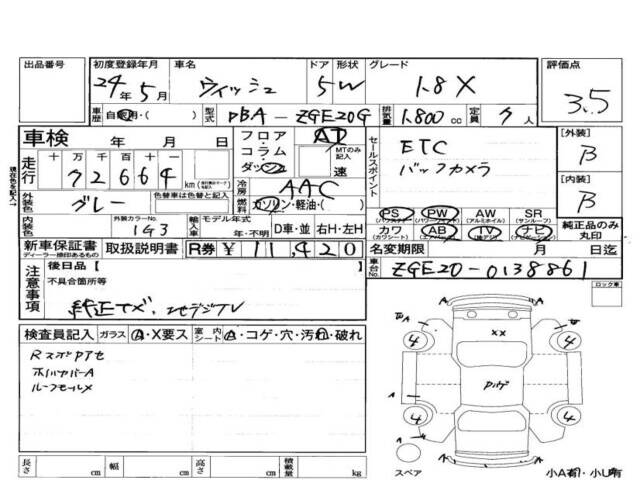 出品番号
初度登録年月 車名 ドア 形状 グレード 評価点
24年5月 ウィッシュ 5 W 1.8X 3.5
車歴 自家用・( ) 型式 DBA - ZGE20G 排気量 1,800 cc 定員 7 人
車検 年 月 日
フロア コラム ダッシュ AT
MTのみ記入 速
セールスポイント ETC
バックカメラ
[外装] B
[内装] B
走行 十 万 千 百 十 一
7 2 6 6 4 km
冷房 AAC
外装色 グレー 色替車は色替と記入
燃料 ガソリン・軽油・( )
内装色 外装カラーNo. 1G3 輸入車 モデル年式 年・不明 D車・並 右H・左H
PS PW AW SR
(パワステ) (パワーウィンドウ) (アルミホイル) (サンルーフ)
カワ AB TV ナビ
(カワシート)
純正品のみ丸印
新車保証書 取扱説明書 R券 ¥ 11,420
ディーラー捺印あるもの
名変期限 月 日迄
車台No. ZGE20-0138861
注意事項 後日品 [ ]
不具合箇所等
純正ナビ、地デジTV
ロック車
検査員記入 ガラス A・X要ス 室内シート A・コゲ・穴・汚れ・破れ
ルーフモールX
A
XX
4 4
4 4
スペア 小A有・小U有
長さ cm 幅 cm 高さ cm 積載量 kg
現在色を記入